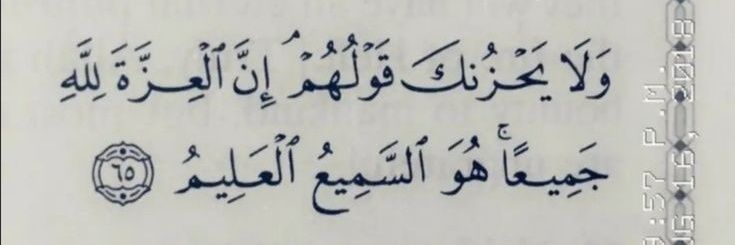 وَلَا يَحْزُنكَ قَوْلُهُمْ ۘ إِنَّ ٱلْعِزَّةَ لِلَّهِ
جَمِيعًا ۚ هُوَ ٱلسَّمِيعُ ٱلْعَلِيمُ ٦٥
:57 P.M.
16, 2018